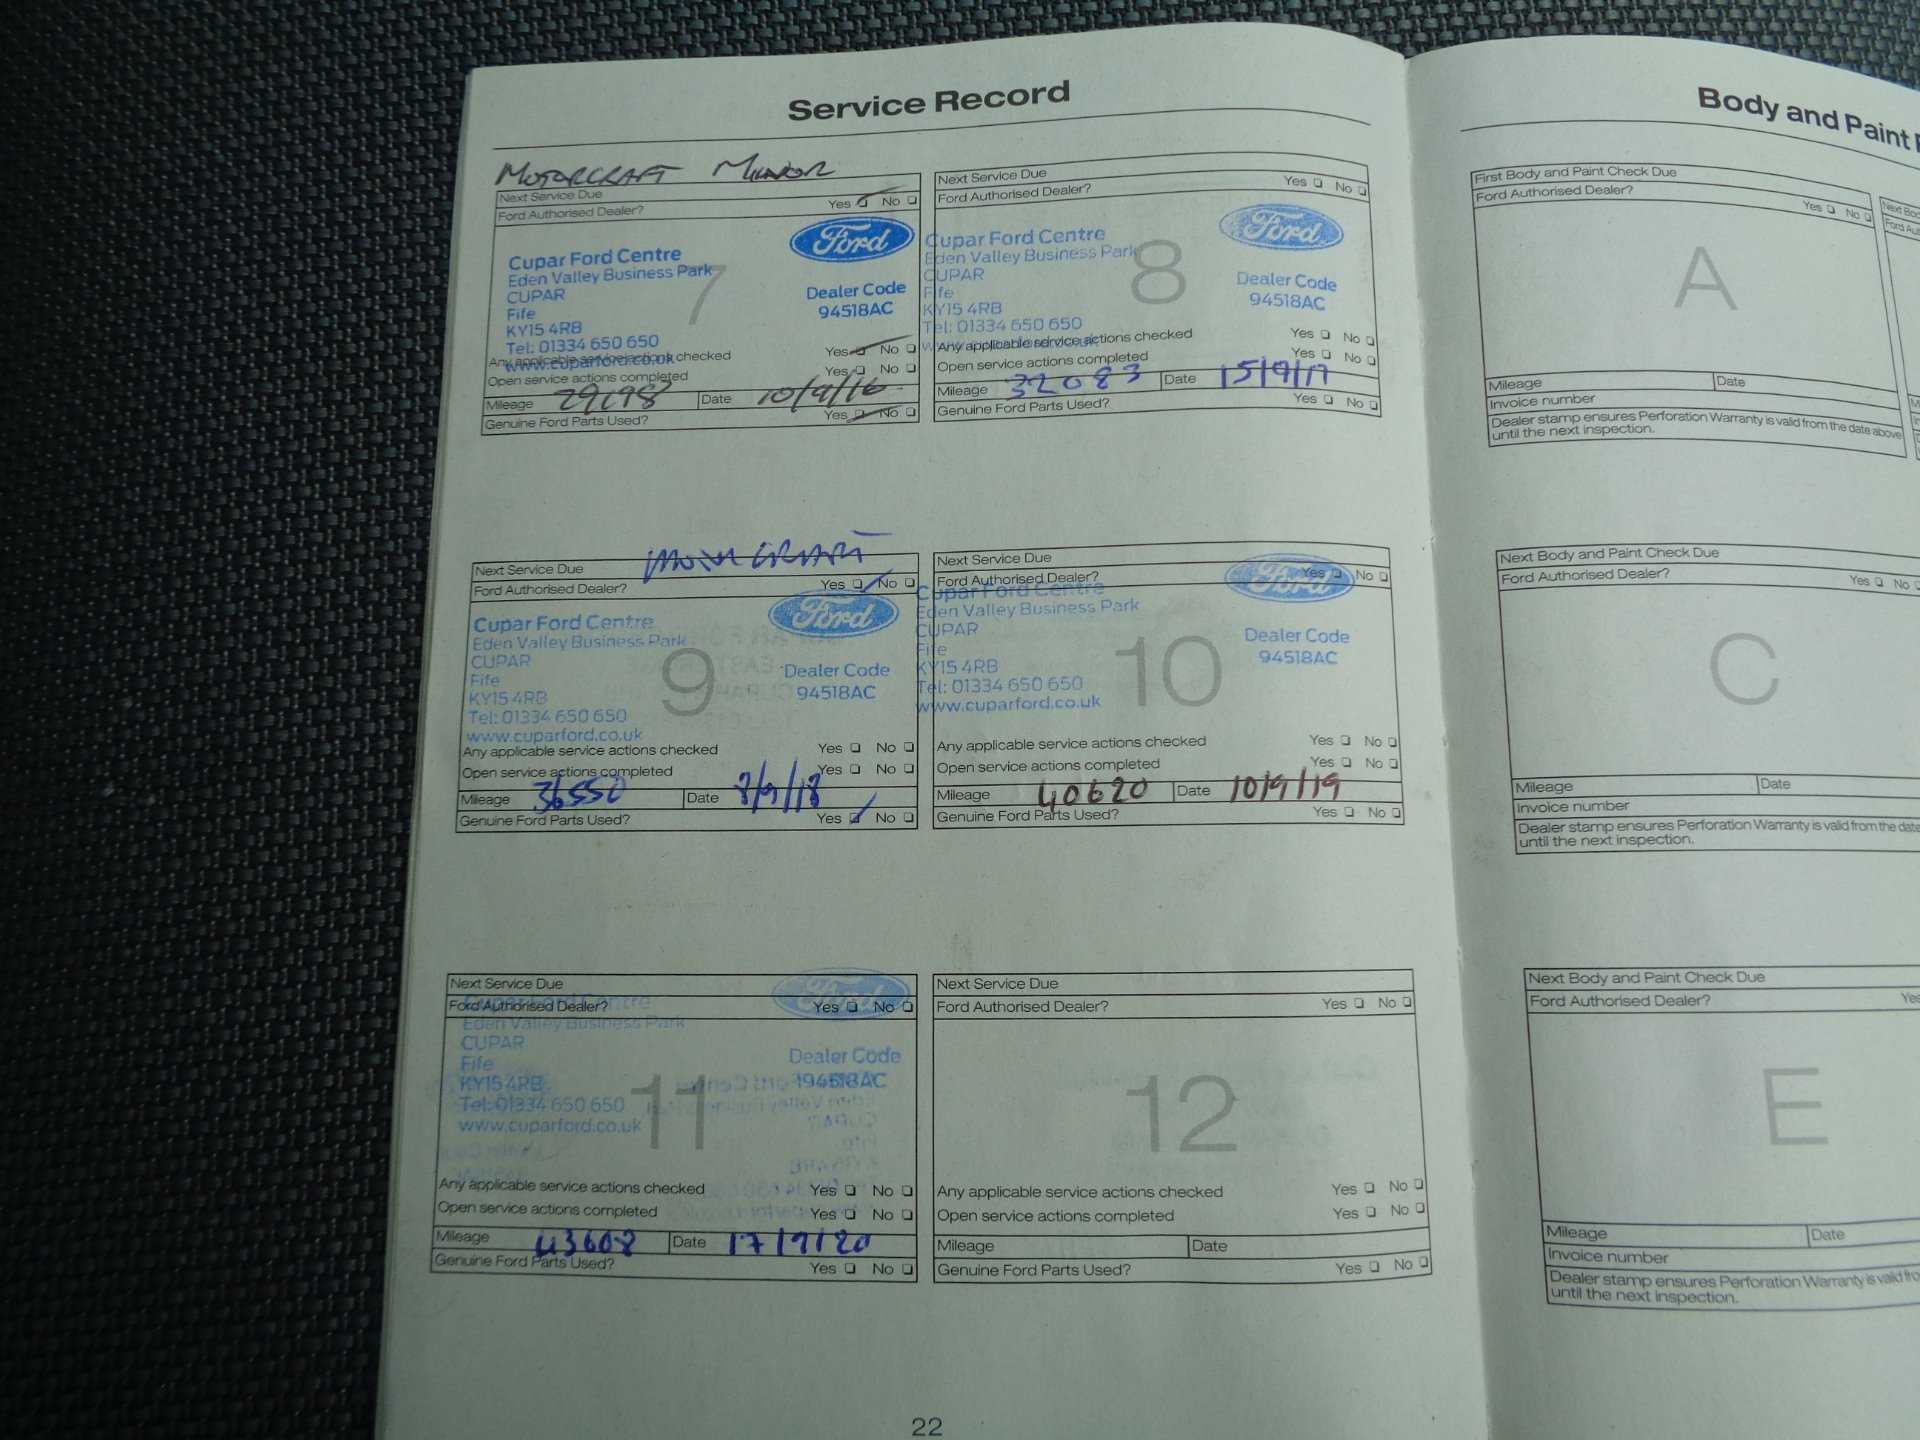 Service Record
MOTORCRAFT
Next Service Due
Ford Authorised Dealer? Yes No
Ford
Cupar Ford Centre
Eden Valley Business Park
CUPAR
Fife
KY15 4RB
Tel: 01334 650 650
www.cuparford.co.uk
Dealer Code
94518AC
7
Any applicable service actions checked Yes No
Open service actions completed Yes No
Mileage Date 10/9/16
Genuine Ford Parts Used? Yes No
Next Service Due
Ford Authorised Dealer? Yes No
Ford
Cupar Ford Centre
Eden Valley Business Park
CUPAR
Fife
KY15 4RB
Tel: 01334 650 650
Dealer Code
94518AC
8
Any applicable service actions checked Yes No
Open service actions completed Yes No
Mileage 32083 Date 15/9/17
Genuine Ford Parts Used? Yes No
Next Service Due
Ford Authorised Dealer? Yes No
Ford
Cupar Ford Centre
Eden Valley Business Park
CUPAR
Fife
KY15 4RB
Tel: 01334 650 650
www.cuparford.co.uk
Dealer Code
94518AC
9
Any applicable service actions checked Yes No
Open service actions completed Yes No
Mileage 36550 Date 8/9/18
Genuine Ford Parts Used? Yes No
Next Service Due
Ford Authorised Dealer? Yes No
Ford
Cupar Ford Centre
Eden Valley Business Park
CUPAR
Fife
KY15 4RB
Tel: 01334 650 650
www.cuparford.co.uk
Dealer Code
94518AC
10
Any applicable service actions checked Yes No
Open service actions completed Yes No
Mileage 40620 Date 10/9/19
Genuine Ford Parts Used? Yes No
Next Service Due
Ford Authorised Dealer? Yes No
Ford
Cupar Ford Centre
Eden Valley Business Park
CUPAR
Fife
KY15 4RB
Tel: 01334 650 650
www.cuparford.co.uk
Dealer Code
94518AC
11
Any applicable service actions checked Yes No
Open service actions completed Yes No
Mileage 43608 Date 17/9/20
Genuine Ford Parts Used? Yes No
Next Service Due
Ford Authorised Dealer? Yes No
12
Any applicable service actions checked Yes No
Open service actions completed Yes No
Mileage Date
Genuine Ford Parts Used? Yes No
22
Body and Paint
First Body and Paint Check Due
Ford Authorised Dealer? Yes No
A
Mileage Date
Invoice number
Dealer stamp ensures Perforation Warranty is valid from the date above
until the next inspection.
Next Body and Paint Check Due
Ford Authorised Dealer? Yes No
C
Mileage Date
Invoice number
Dealer stamp ensures Perforation Warranty is valid from the date
until the next inspection.
Next Body and Paint Check Due
Ford Authorised Dealer?
E
Mileage Date
Invoice number
Dealer stamp ensures Perforation Warranty is valid
until the next inspection.